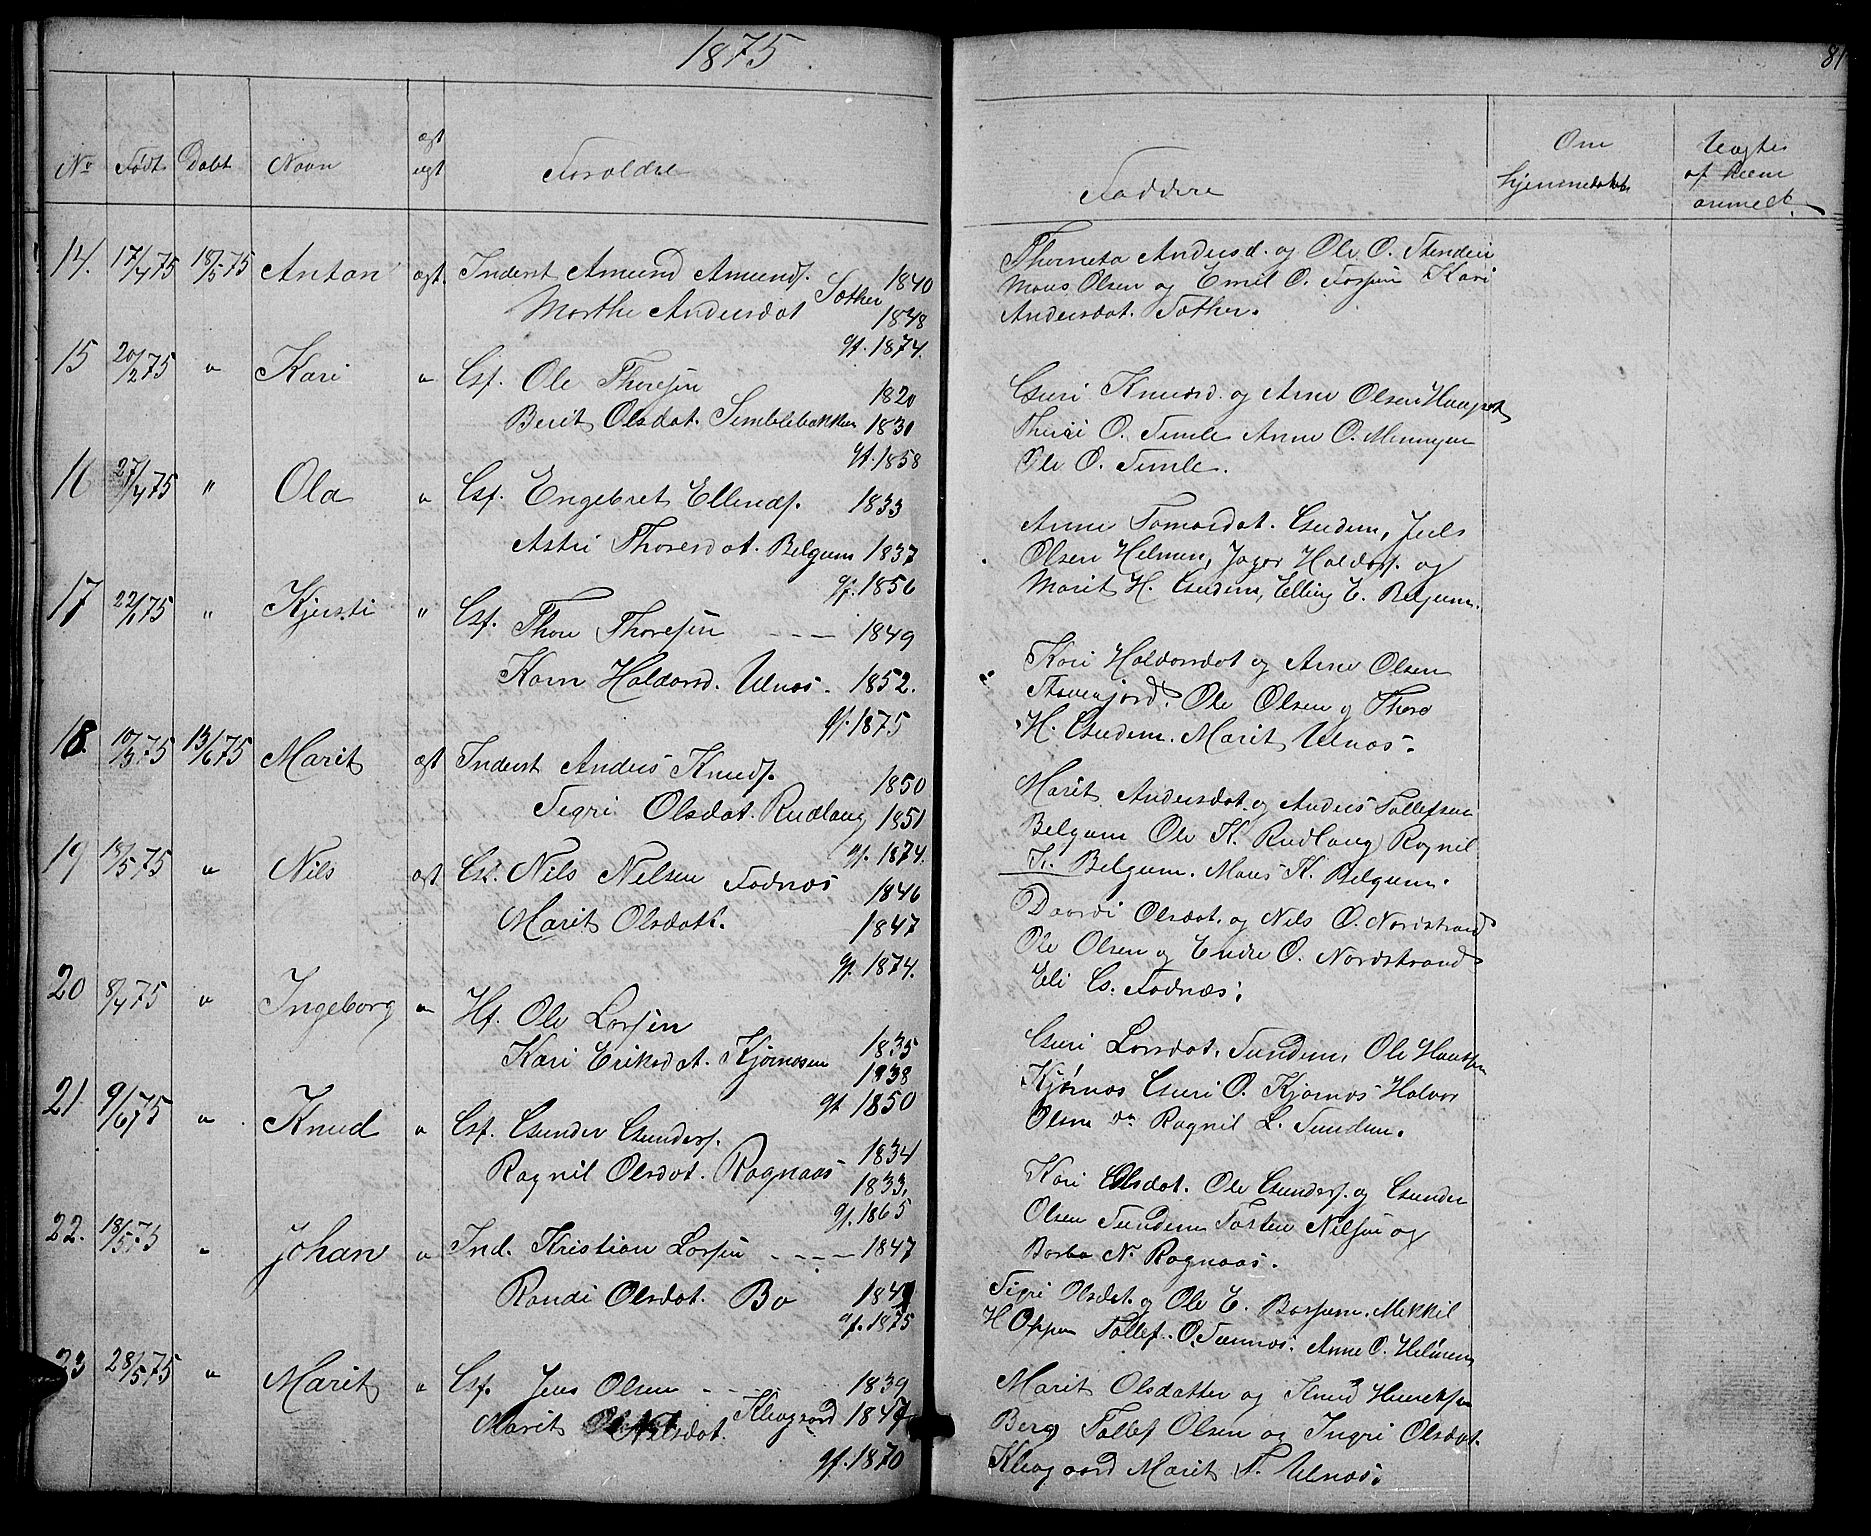 1875
81
No Født Døbt Navn ægt uegt Foroldre
Faddere Om hjemmedøbt Uægte af hvem anmeldt
14. 17/4 75 18/5 75 Anton ægt. Inderst Amund Amunds. 1840
Marthe Andersdat Sæther 1848
gf. 1874.
Thorneta Andersd. og Ole O.
Mons Olsen og Emil O. Kari
Andersdat. Sæther.
15 20/2 75 " Kari " Gsf. Ole Thoresen 1820
Berit Olsdat. Simlebakken 1831
gf. 1858
Guri Knudsd. og Arne Olsen
O. Simle Anne O.
Ole O. Simle.
16 27/4 75 " Ola " Gsf. Engebret Ellends. 1833
Astri Thoresdat. Belgum 1837
gf. 1856
Anne Gudem, Juls
Olsen Helmen, Haldors. og
Marit H. Gudem, Elling E. Belgum.
17 22/ 75 " Kjersti " Gsf. Thore Thoresen - - - 1849
Karn Haldorsd. Ulnæs. 1852.
gf. 1875
Kari Haldorsdat og Arne Olsen
Ole Olsen og Thore
H. Gudem. Marit Ulnæs.
18. 10/3 75 13/6 75 Marit ægt Inderst Anders Knuds. 1850
Sigri Olsdat. Rudlang 1851
gf. 1874.
Marit Andersdat. og Anders Tollefsen
Belgum Ole K. Rudlang Rognil
K. Belgum. Mons K. Belgum.
19 18/5 75 " Nils ægt Gsf. Nils Nilsen Fodnæs 1846
Marit Olsdatt. 1847
gf. 1874.
Olsdat. og Nils O. Nordstrand
Ole Olsen og Endre O. Nordstrand
Eli G. Fodnæs.
20 8/4 75 " Ingeborg " Hf. Ole Larsen 1835
Kari Eriksdat. Kjørnæsen 1838
gf. 1850
Guri Larsdat. Sundem, Ole
Kjørnæs Guri O. Kjørnæs Halvor
Olsen do Rognil L. Sundem.
21 9/6 75 " Knud " Gsf. Gunder Gunders. 1834
Rognil Olsdat. Rognaas 1833.
gf. 1865
Kari Olsdat. Ole Gunders. og Gunder
Olsen Sundem Torsten Nilsen og
Barbo N. Rognaas.
22. 18/5 75 " Johan " Ind. Kristian Larsen - - - 1847
Randi Olsdat. Bø
gf. 1875
Sigri Olsdat. og Ole E. Mikkil
H Oppen Tollef. O. Anne O. Helmen
23 28/5 75 " Marit " Gsf. Jens Olsen - - 1839
Marit Nilsdat. Klevgaard 1847
gf. 1870
Marit Olsdatter og Knud Henriksen
Berg Tollef Olsen og Ingri Olsdat.
Klevgaard Marit T. Ulnæs.